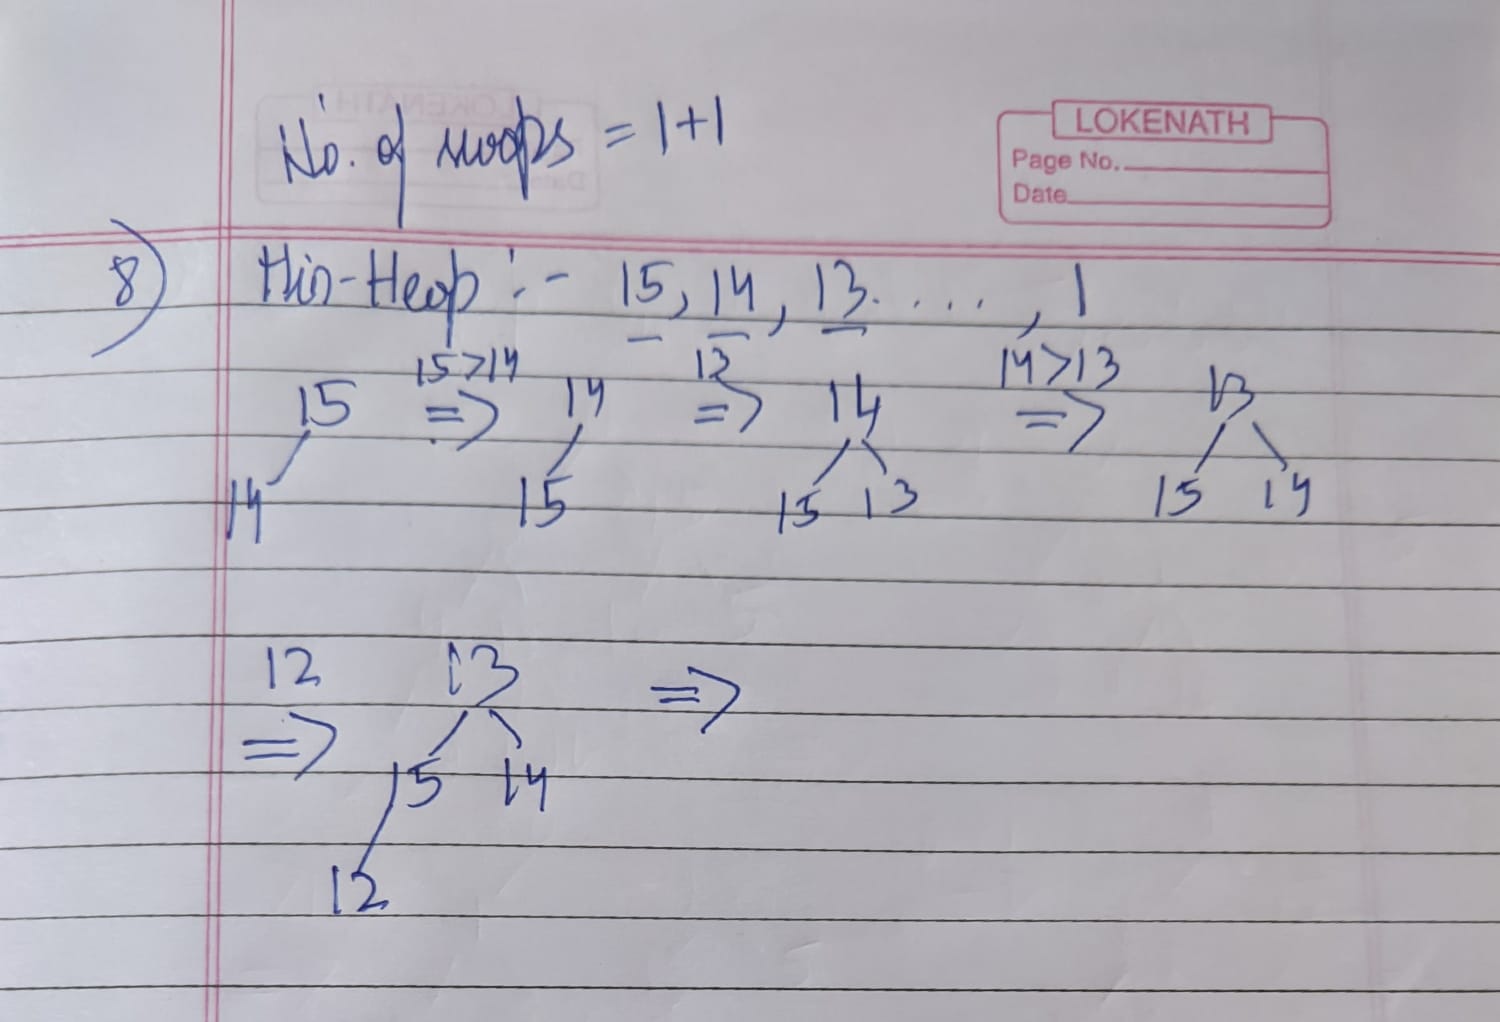 No. of swops = 1+1
LOKENATH
Page No.
Date
8) Min-Heap :- 15, 14, 13. . . . , 1
15>14 12 14>13
15 => 14 => 14 => 13
14 15 15 13 15 14
12 13 =>
=> 15 14
12